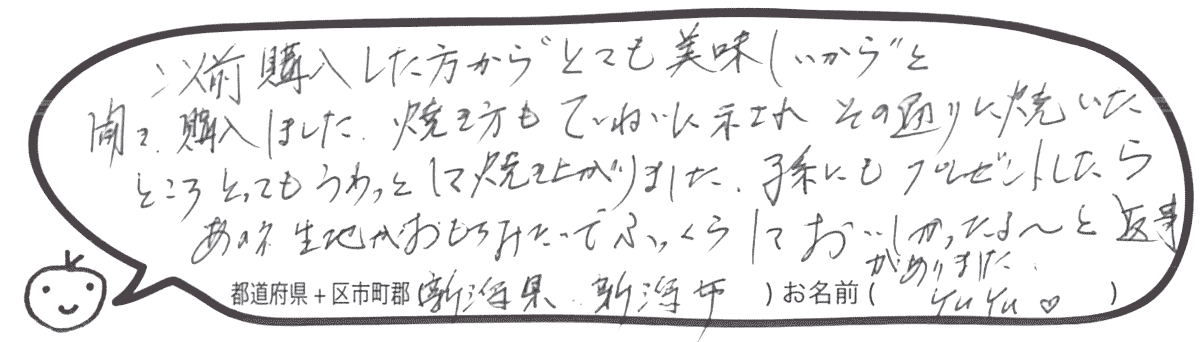 以前購入した方から"とても美味しいから"と
聞き、購入しました。焼き方もていねいに示され その通りに焼いた
ところとってもふわっとして焼き上がりました。孫にもプレゼントしたら
あのネ生地がおもちみたいでふっくらしておいしかったよ〜と返事
がありました。
都道府県+区市町郡 新潟県 新潟市 ) お名前 ( YuYu ♡ )